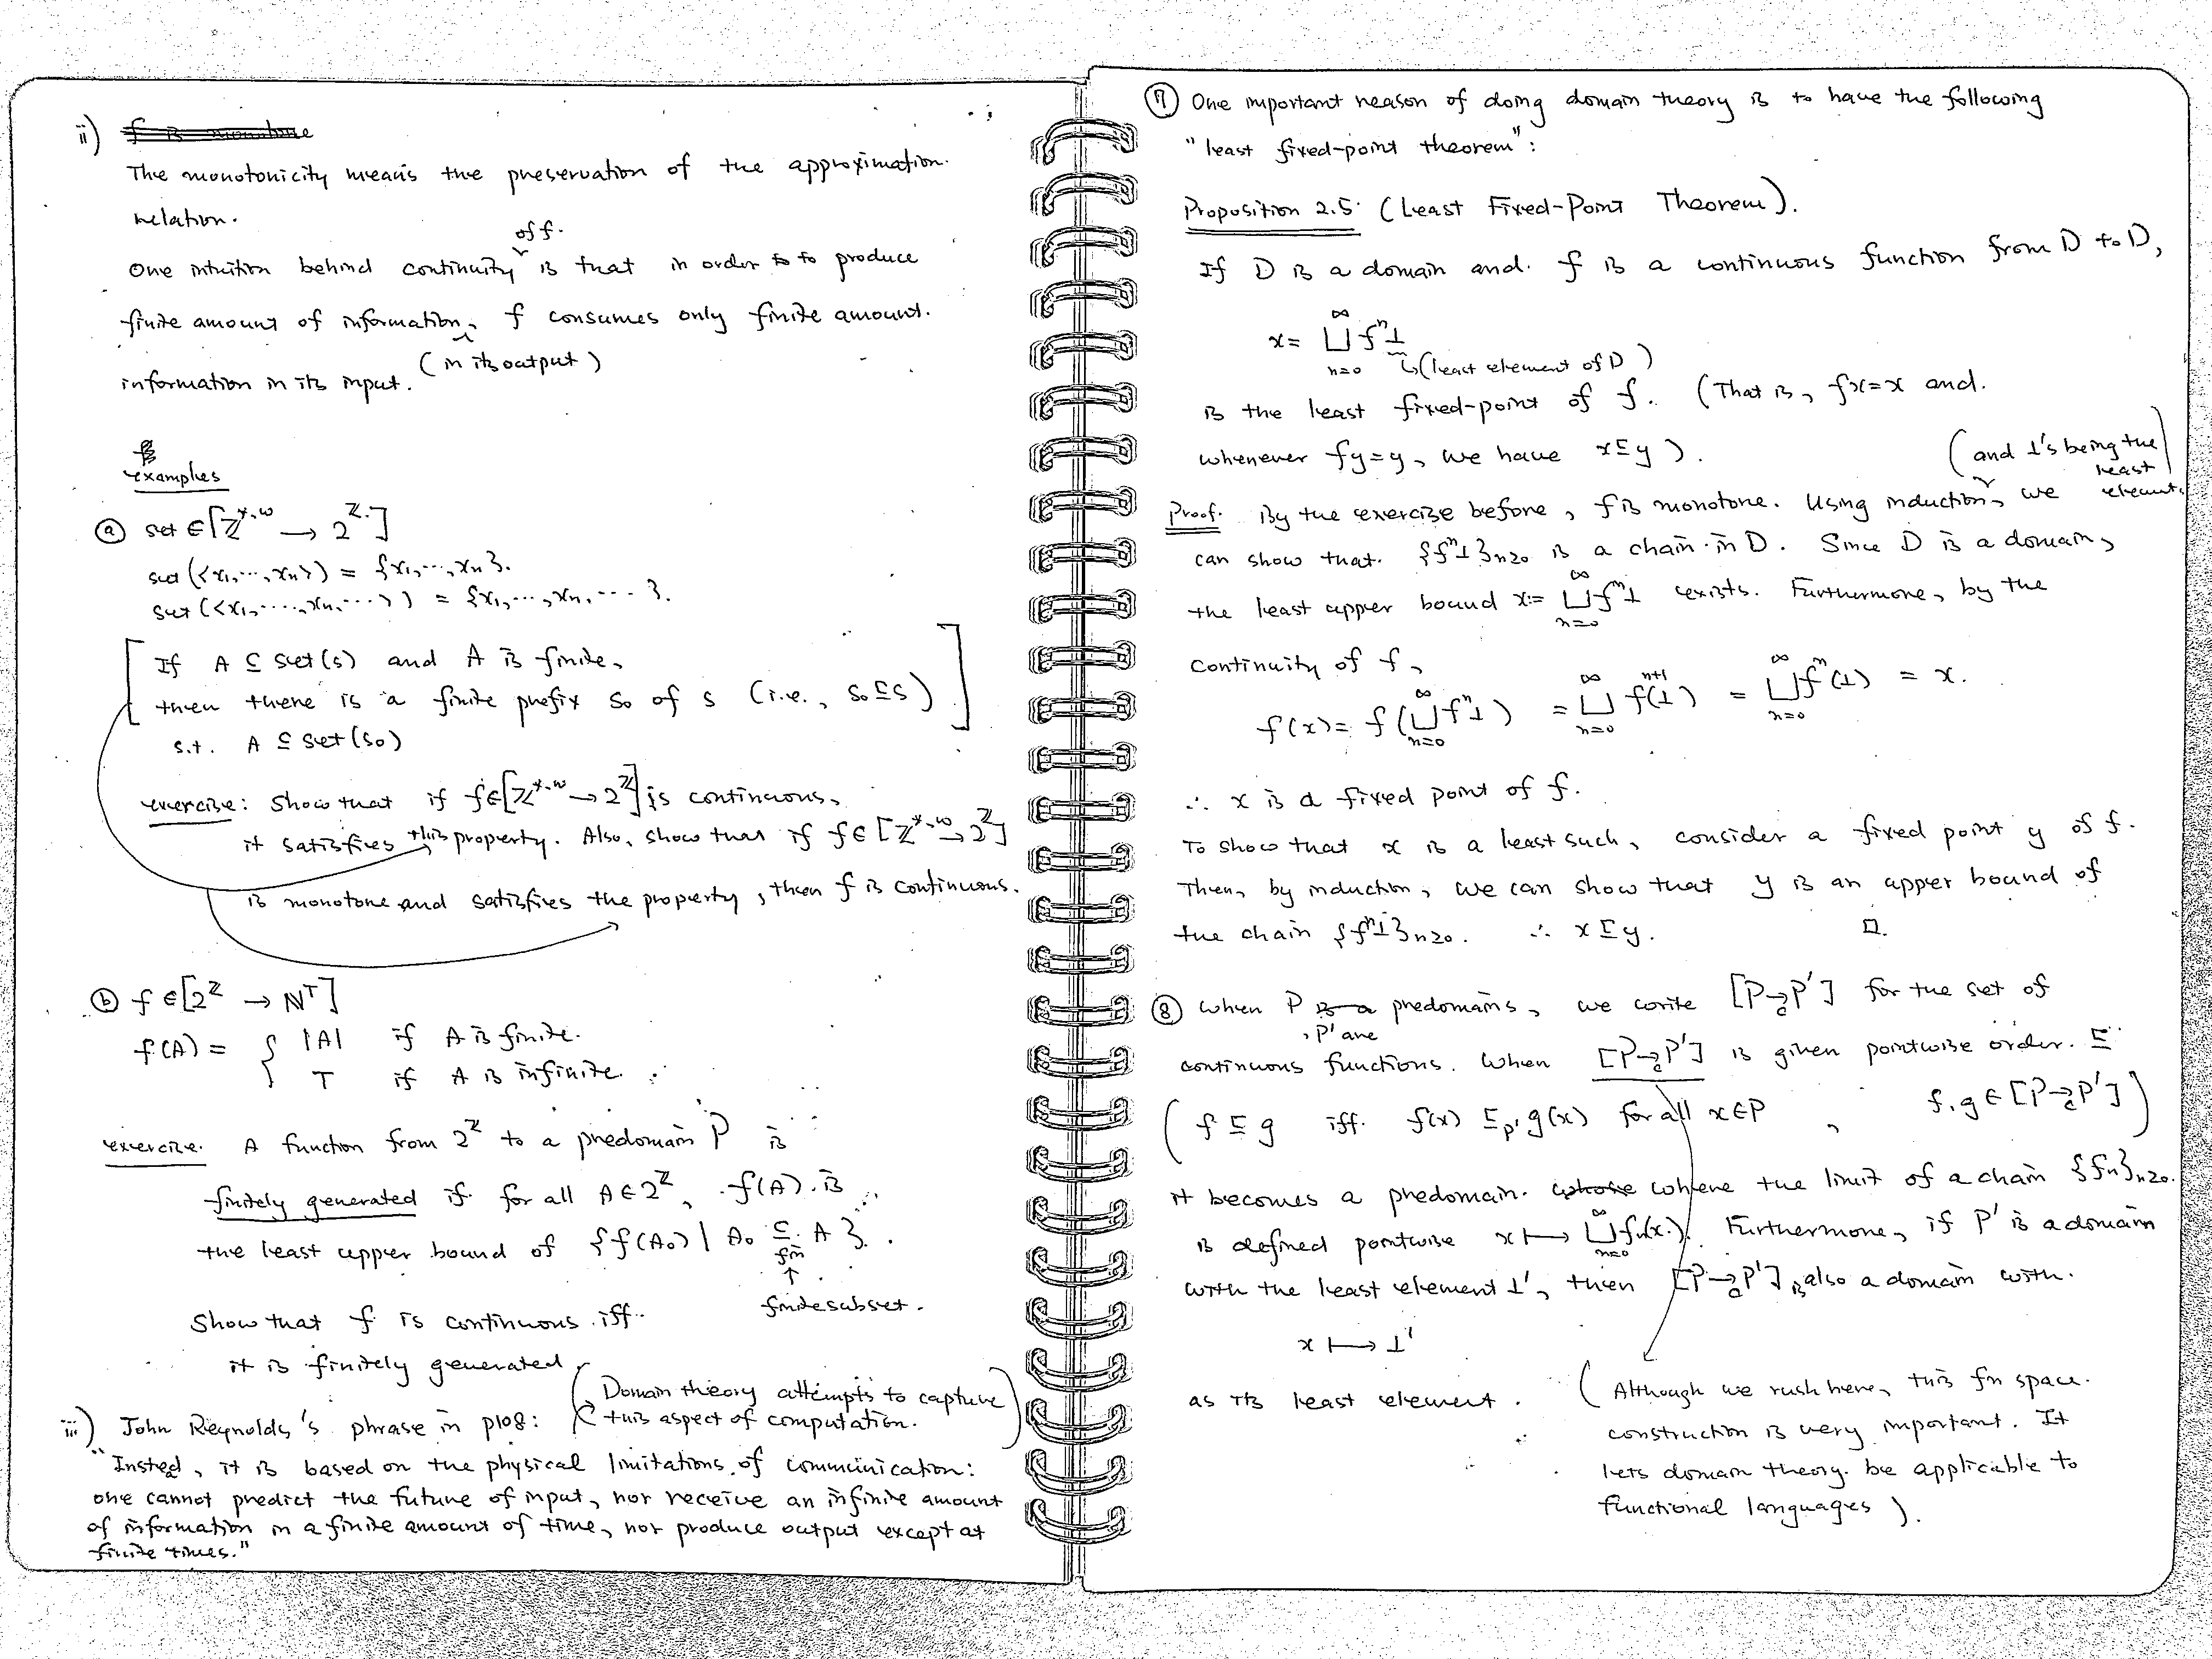 ii) f is monotone
The monotonicity means the preservation of the approximation
relation.
of f.
One intuition behind continuity is that in order to to produce
finite amount of information, f consumes only finite amount.
(in its output)
information in its input.
examples
ⓐ set ∈ [Z^{*,ω} → 2^Z]
set(<x₁,…,xₙ>) = {x₁,…,xₙ}.
set(<x₁,……,xₙ,…>) = {x₁,…,xₙ,…}.
If A ⊆ set(s) and A is finite,
then there is a finite prefix s₀ of s (i.e., s₀ ⊑ s)
s.t. A ⊆ set(s₀)
exercise: Show that if f ∈ [Z^{*,ω} → 2^Z] is continuous,
it satisfies this property. Also, show that if f ∈ [Z^{*,ω} → 2^Z]
is monotone and satisfies the property, then f is continuous.
ⓑ f ∈ [2^Z → N^⊤]
f(A) = { |A| if A is finite.
⊤ if A is infinite.
exercise. A function from 2^Z to a predomain P is
finitely generated if for all A ∈ 2^Z, f(A) is
the least upper bound of {f(A₀) | A₀ ⊆_fin A}.
↑
finite subset.
Show that f is continuous iff
it is finitely generated
(Domain theory attempts to capture
this aspect of computation.)
iii) John Reynolds's phrase in p108:
"Insted, it is based on the physical limitations of communication:
one cannot predict the future of input, nor receive an infinite amount
of information in a finite amount of time, nor produce output except at
finite times."
⑦ One important reason of doing domain theory is to have the following
"least fixed-point theorem":
Proposition 2.5. (Least Fixed-Point Theorem).
If D is a domain and f is a continuous function from D to D,
x = ⊔_{n=0}^∞ fⁿ⊥
(least element of D)
is the least fixed-point of f. (That is, fx=x and
whenever fy=y, we have x⊑y).
(and ⊥'s being the
least
element)
Proof. By the exercise before, f is monotone. Using induction, we
can show that {fⁿ⊥}_{n≥0} is a chain in D. Since D is a domain,
the least upper bound x = ⊔_{n=0}^∞ fⁿ⊥ exists. Furthermore, by the
continuity of f,
f(x) = f(⊔_{n=0}^∞ fⁿ⊥) = ⊔_{n=0}^∞ f^{n+1}(⊥) = ⊔_{n=0}^∞ fⁿ(⊥) = x.
∴ x is a fixed point of f.
To show that x is a least such, consider a fixed point y of f.
Then, by induction, we can show that y is an upper bound of
the chain {fⁿ⊥}_{n≥0}. ∴ x⊑y. □.
⑧ When P is a predomains, we write [P →_c P'] for the set of
, P' are
continuous functions. When [P →_c P'] is given pointwise order ⊑
(f ⊑ g iff f(x) ⊑_{P'} g(x) for all x∈P, f,g ∈ [P →_c P'])
it becomes a predomain whose where the limit of a chain {fn}_{n≥0}
is defined pointwise x ↦ ⊔_{n=0}^∞ fn(x). Furthermore, if P' is a domain
with the least element ⊥', then [P →_c P'] is also a domain with
x ↦ ⊥'
as its least element.
(Although we rush here, this fn space
construction is very important. It
lets domain theory be applicable to
functional languages).